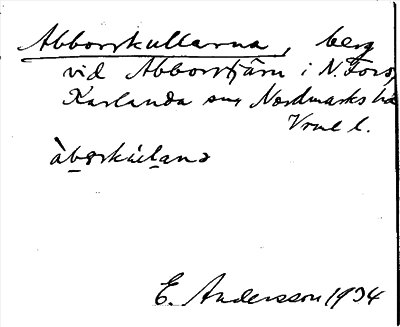 Abborrkullarna, berg
vid Abborrtjärn i N. Fors,
Karlanda sn, Nordmarks hd
Vrml l.
àbərkúlanə
E. Andersson 1934